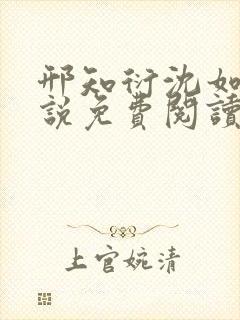 邢知衍沈如
說免費閱讀
上官婉清